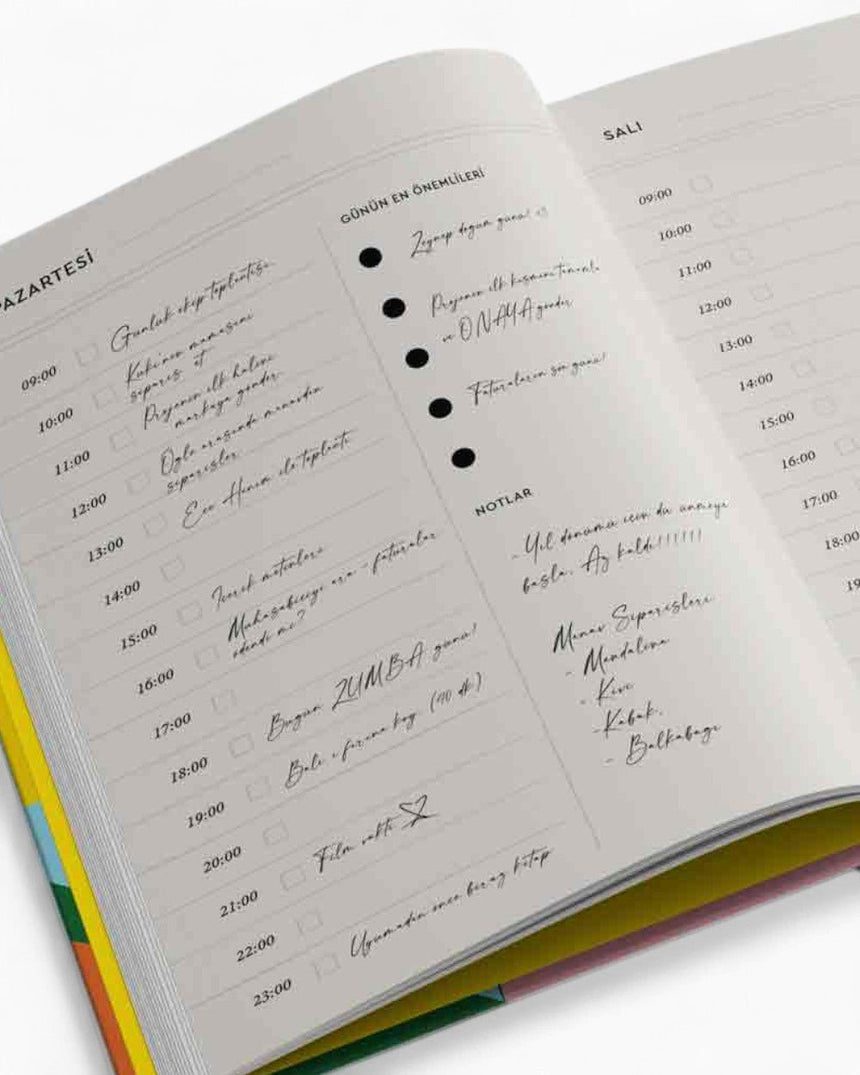 PAZARTESİ
09:00 Günlük ekip toplantısı
10:00 Kuki'nin mamasını
sipariş et
11:00 Projenin ilk halini
markaya gönder.
12:00 Öğle arasında manavdan
siparişler
13:00 Ece Hanım ile toplantı
14:00
15:00 İçerik metinleri
16:00 Muhasebeciyi ara - faturalar
ödendi mi?
17:00
18:00 Bugün ZUMBA günü!
19:00 Balı fırına koy. (40 dk)
20:00
21:00 Film vakti
22:00
23:00 Uyumadan önce biraz kitap
GÜNÜN EN ÖNEMLİLERİ
Zeynep doğum günü!
Projenin ilk kısmını tamamla
ve ONAYA gönder
Faturaların son günü!
NOTLAR
- Yıl dönümü için düşünmeye
başla. Az kaldı!!!!!!!
Manav Siparişleri
- Mandalina
- Kivi
- Kabak.
- Balkabağı
SALI
09:00
10:00
11:00
12:00
13:00
14:00
15:00
16:00
17:00
18:00